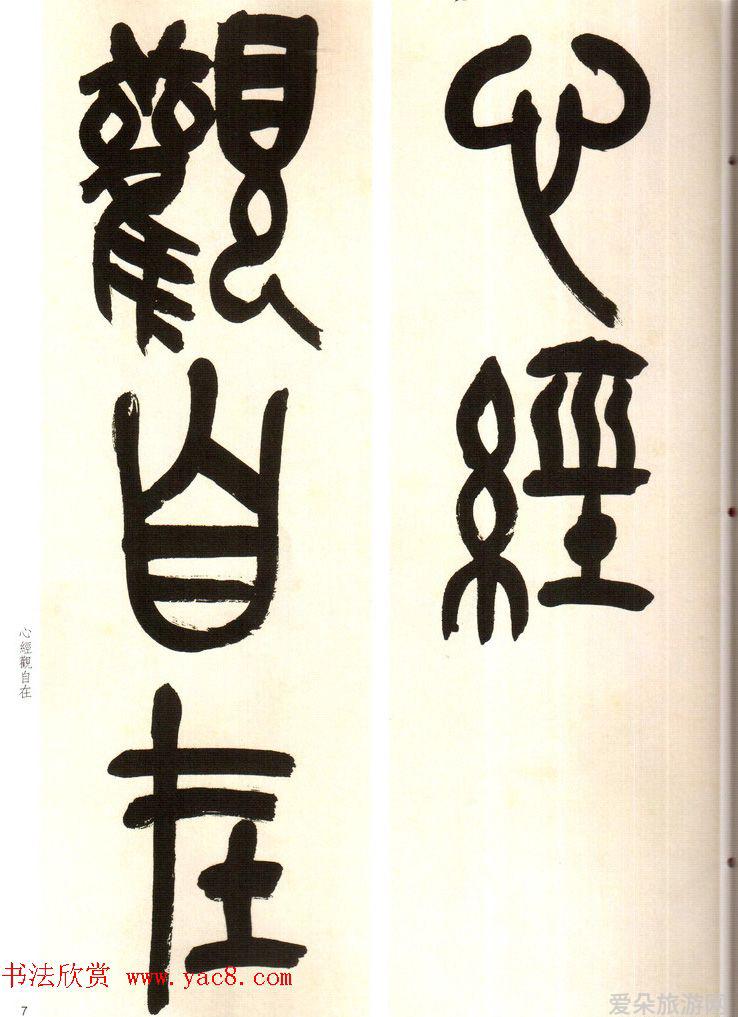 心經
觀自在
心經觀自在
书法欣赏 www.yac8.com
7
爱朵旅游网